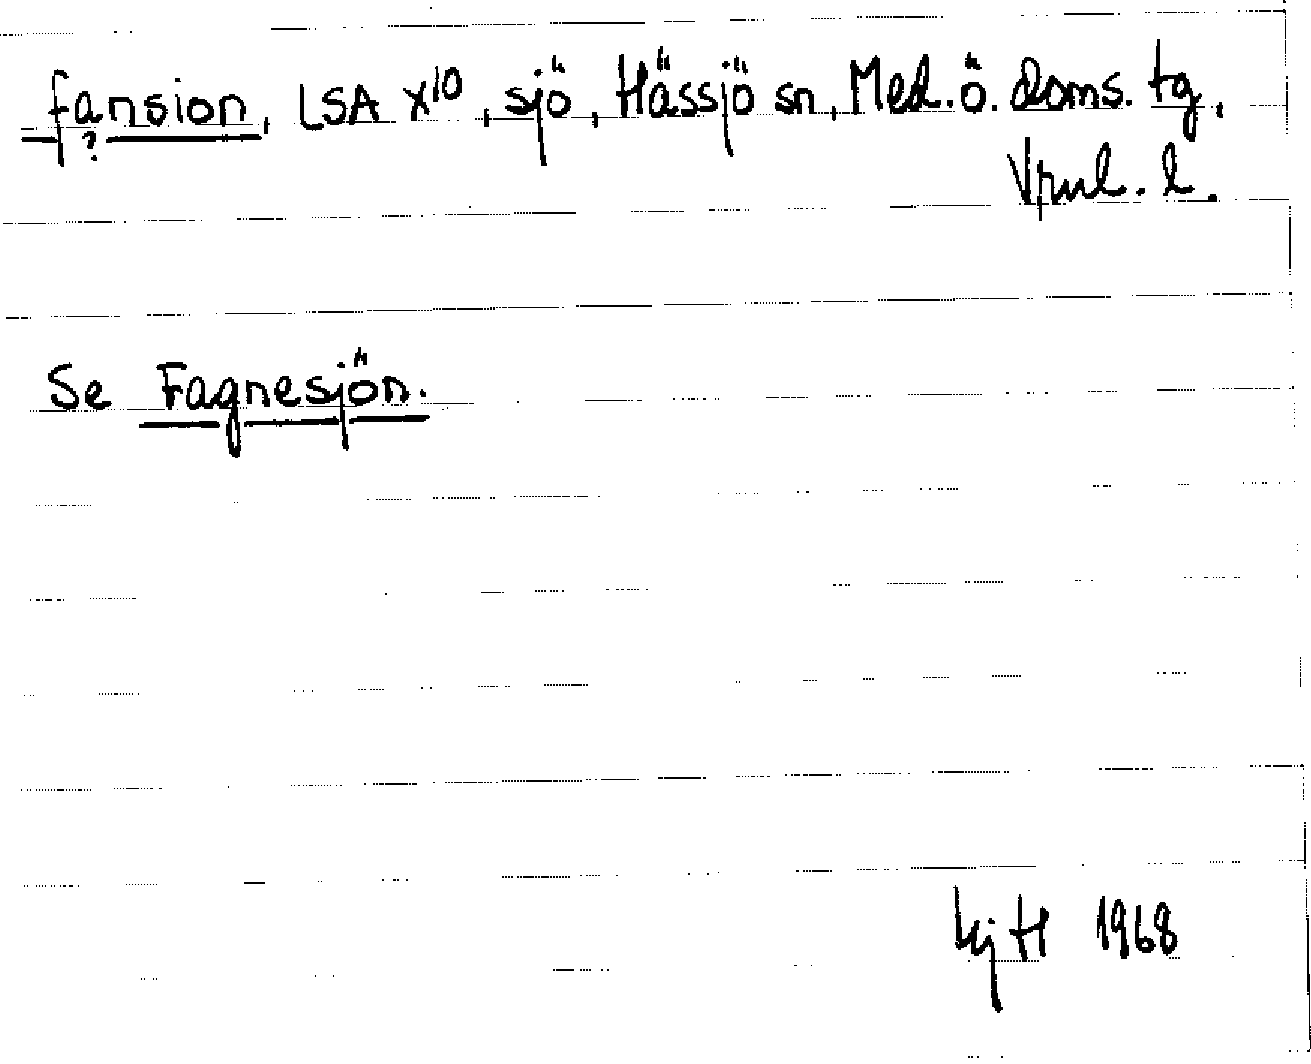 fansion, LSA X10, sjö, Hässjö sn, Med. ö. doms. tg,
?
Vrnl. l.
Se Fagnesjön.
1968